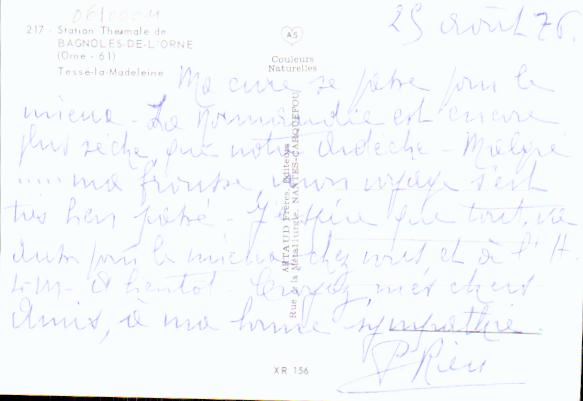 061000M
217 - Station Thermale de
BAGNOLES-DE-L'ORNE
(Orne - 61)
Tesse-la-Madeleine
AS
Couleurs
Naturelles
25 août 76.
Ma cure se passe pour le
mieux - La Normandie est encore
plus sèche que notre Ardèche - Malgré
..... ma frousse, mon voyage s'est
très bien passé - J'espère que tout va
aussi pour le mieux chez vous et à l'H.
L.M. - A bientôt - Croyez mes chers
Amis, à ma bonne sympathie.
P Rieu
ARTAUD Frères, Editeurs
Rue de la Métallurgie, NANTES-CARQUEFOU
XR 156